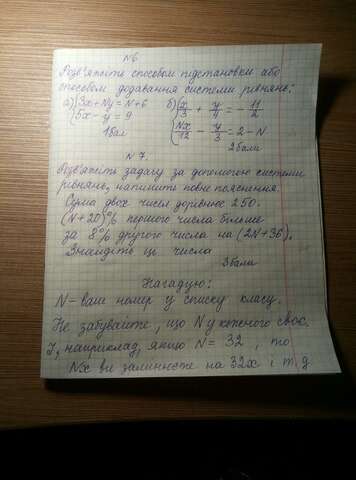 №6
Розв'яжіть способом підстановки або
способом додавання системи рівнянь:
а) {3x + Ny = N + 6 б) {x/3 + y/4 = - 11/2
{5x - y = 9 {Nx/12 - y/3 = 2 - N
1 бал
2 бали
№7.
Розв'яжіть задачу за допомогою системи
рівнянь, напишіть повне пояснення.
Сума двох чисел дорівнює 250.
(N+20)% першого числа більше
за 8% другого числа на (2N+36).
Знайдіть ці числа
3 бали
Нагадую:
N - ваш номер у списку класу.
Не забувайте, що N у кожного своє.
І, наприклад, якщо N = 32, то
Nx ви заміните на 32x і т. д